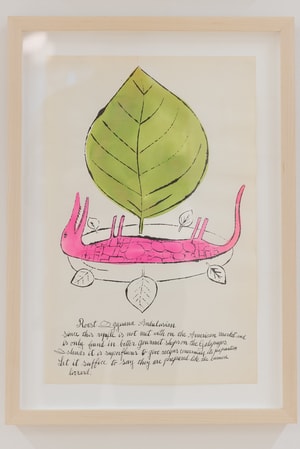 Roast Igyuana Andalusian
since this reptile is not met with on the American market and
is only found in better gourmet shops on the Galapagos
Islands it is superfluous to give recipes concerning its preparation
Let it suffice to say they are prepared like the